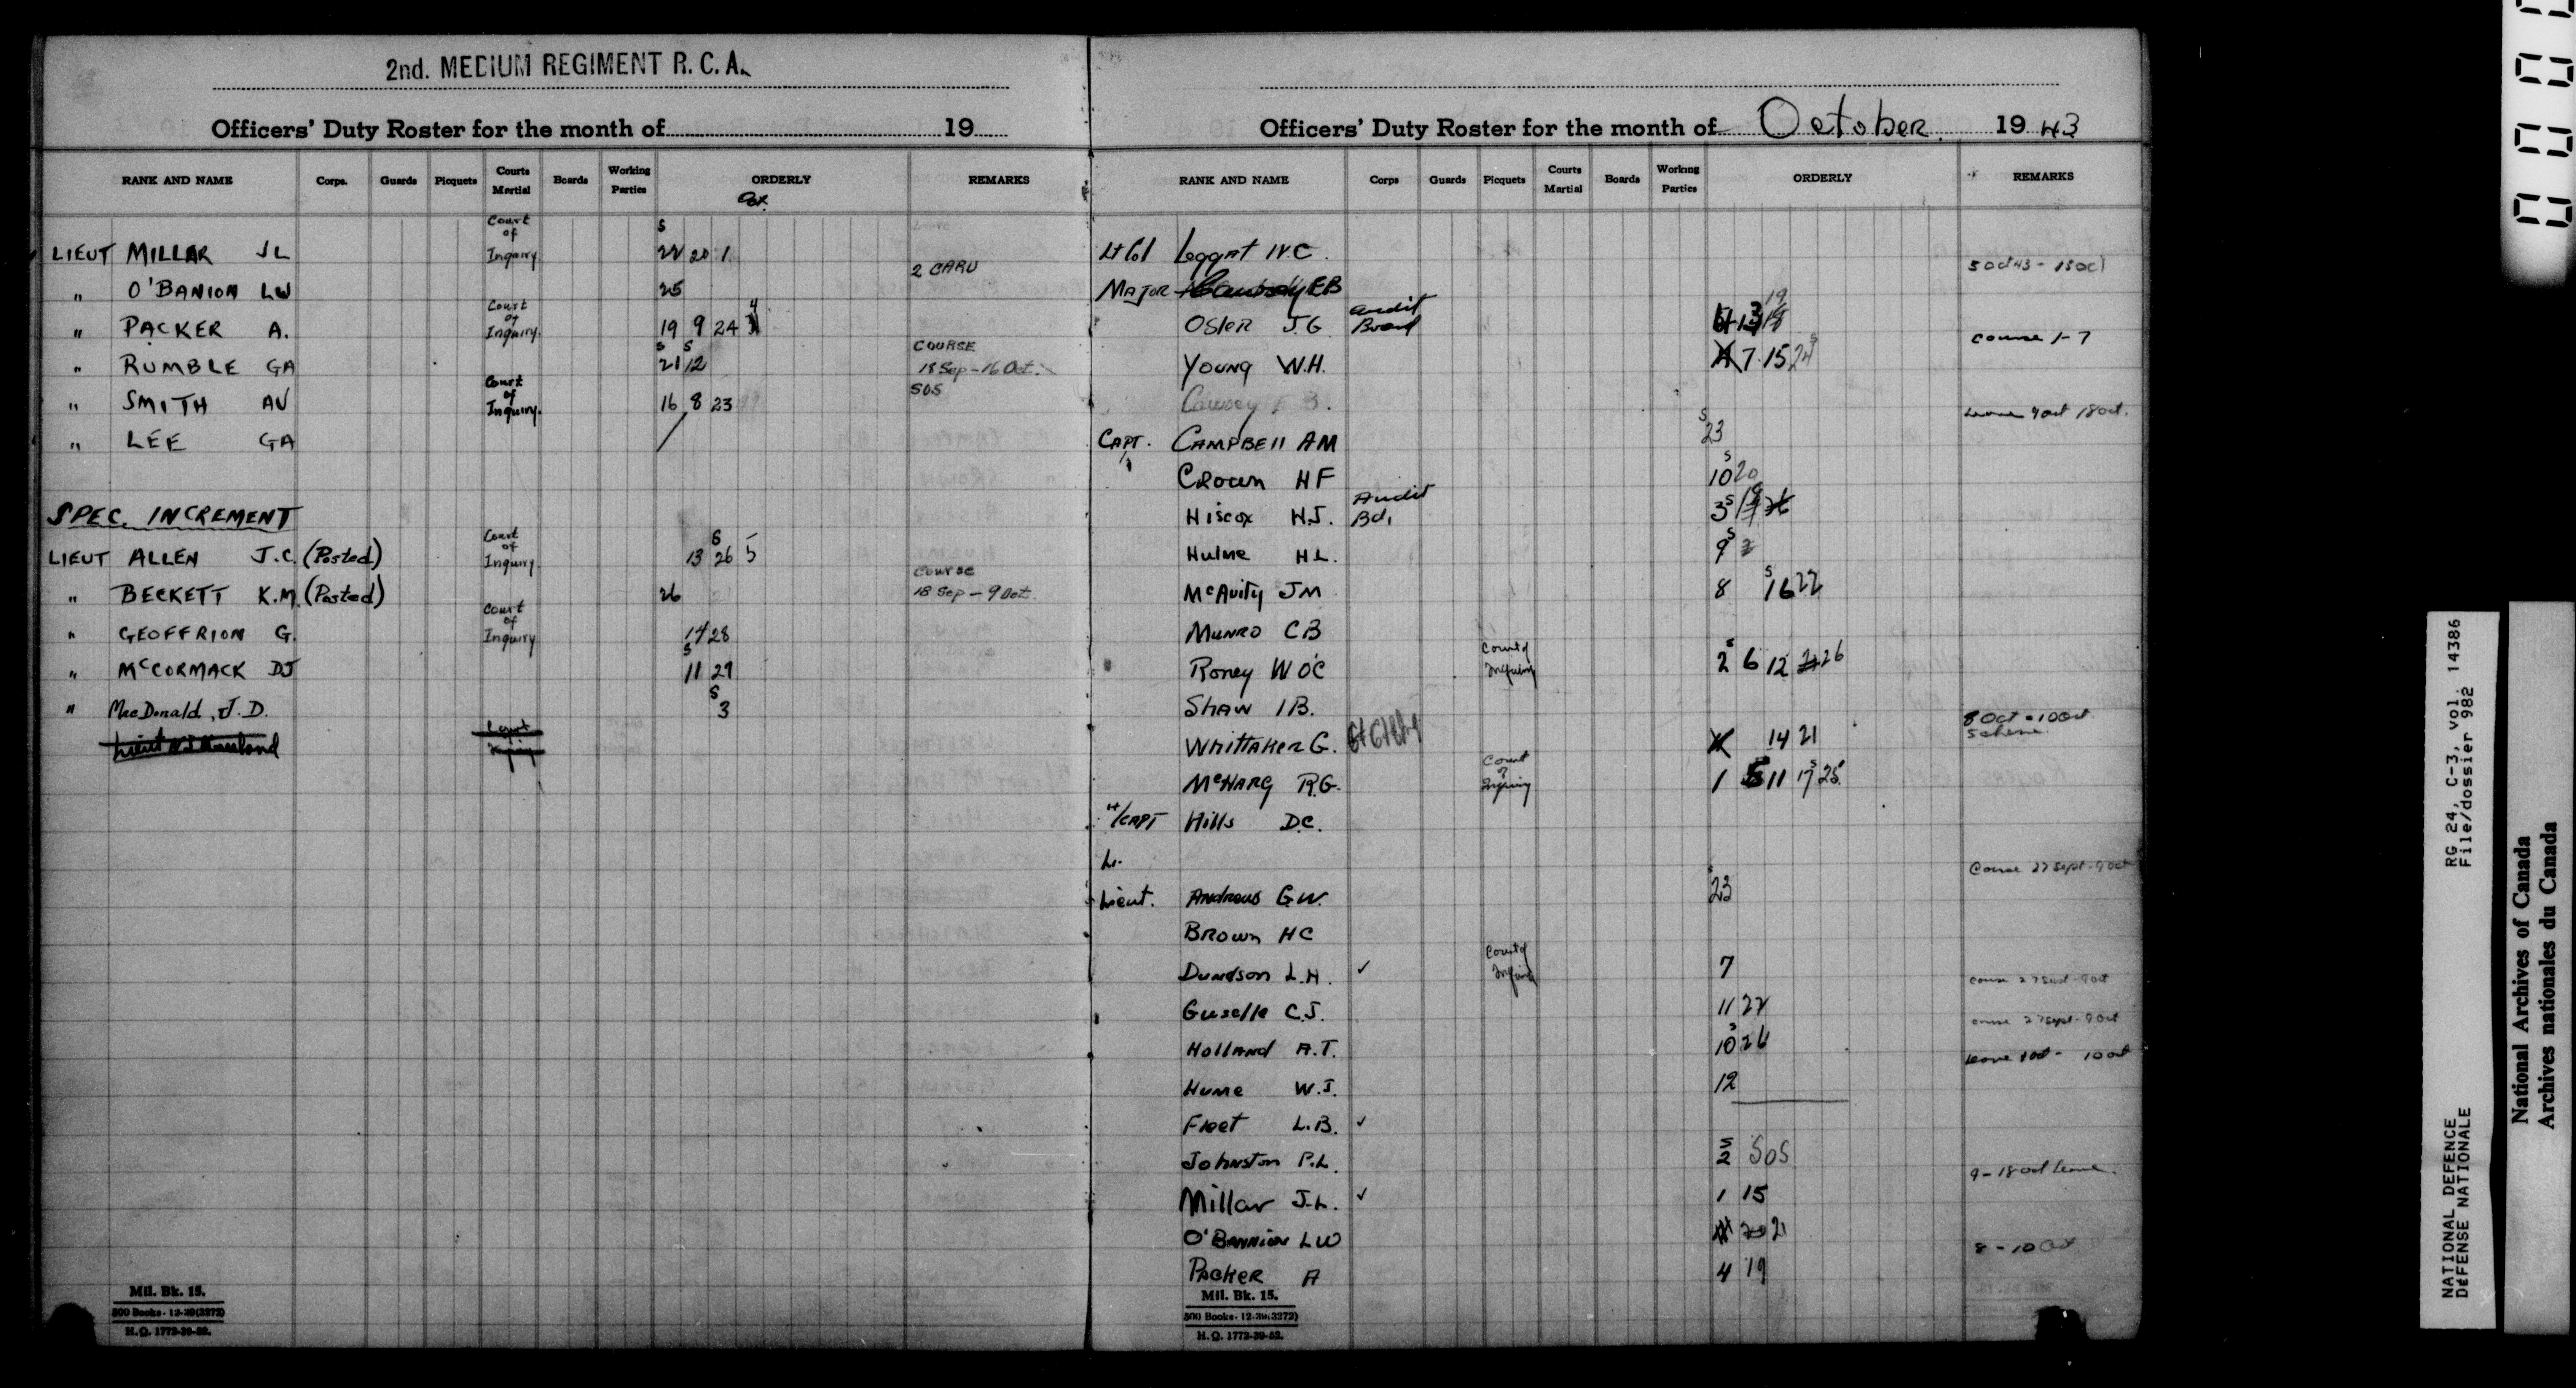 2nd. MEDIUM REGIMENT R. C. A.
Officers' Duty Roster for the month of 19
RANK AND NAME Corps. Guards Picquets Courts Martial Boards Working Parties ORDERLY REMARKS
Oct.
LIEUT MILLAR JL Court of Inquiry 20 1
" O'BANION LW 25 2 CARU
" PACKER A. Court of Inquiry. 19 9 24 4
" RUMBLE GA S 21 S 12 COURSE 18 Sep - 16 Oct.
" SMITH AV Court of Inquiry. 16 8 23 SOS
" LEE GA
SPEC. INCREMENT
LIEUT ALLEN J.C. (Posted) Court of Inquiry 13 S 26 5
" BECKETT K.M. (Posted) 26 Course 18 Sep - 9 Oct.
" GEOFFRION G. Court of Inquiry 14 28
" McCORMACK DJ S 11 27
" MacDonald, J. D. S 3
Mil. Bk. 15.
500 Books - 12-39(3272)
H.Q. 1772-39-52.
Officers' Duty Roster for the month of October 1943
RANK AND NAME Corps Guards Picquets Courts Martial Boards Working Parties ORDERLY REMARKS
Lt Col Leggat W.C.
MAJOR EB 5 Oct 43 - 15 Oct
Osler J.G. Audit Board 19
Young W.H. 7 15 24 Course 1-7
Cawsey
CAPT. CAMPBELL AM S 23 Leave 9 Oct 18 Oct.
Crown HF S 10 20
Hiscox H.J. Audit Bd. 3 S
Hulme H.L. 9 S
McAvity JM 8 S 16 22
Munro CB
Roney W O'C Court of Inquiry 2 S 6 12 26
Shaw I B.
Whittaker G. 14 21 8 Oct - 10 Oct Scheme
McHarg R.G. Court of Inquiry 1 5 11 17 S 25
A/CAPT Hills D.C.
L.
Lieut. Andrews G W. S 23 Course 27 Sept - 9 Oct
Brown HC
Dundson L.H. ✓ Court of Inquiry 7
Guselle C.J. 11 22 Course 27 Sept - 9 Oct
Holland A.T. S 10 26 Course 27 Sept - 9 Oct
Hume W.J. 12 Leave 1 Oct - 10 Oct
Fleet L.B. ✓
Johnston P.L. S 2 SOS
Millar J.L. ✓ 1 15 9 - 18 Oct Leave.
O'Bannion LW 21
Packer A 4 19 8 - 10 Oct
Mil. Bk. 15.
500 Books - 12-39(3272)
H.Q. 1772-39-52.
RG 24, C-3, vol. 14386
File/dossier 982
NATIONAL DEFENCE
DéFENSE NATIONALE
National Archives of Canada
Archives nationales du Canada